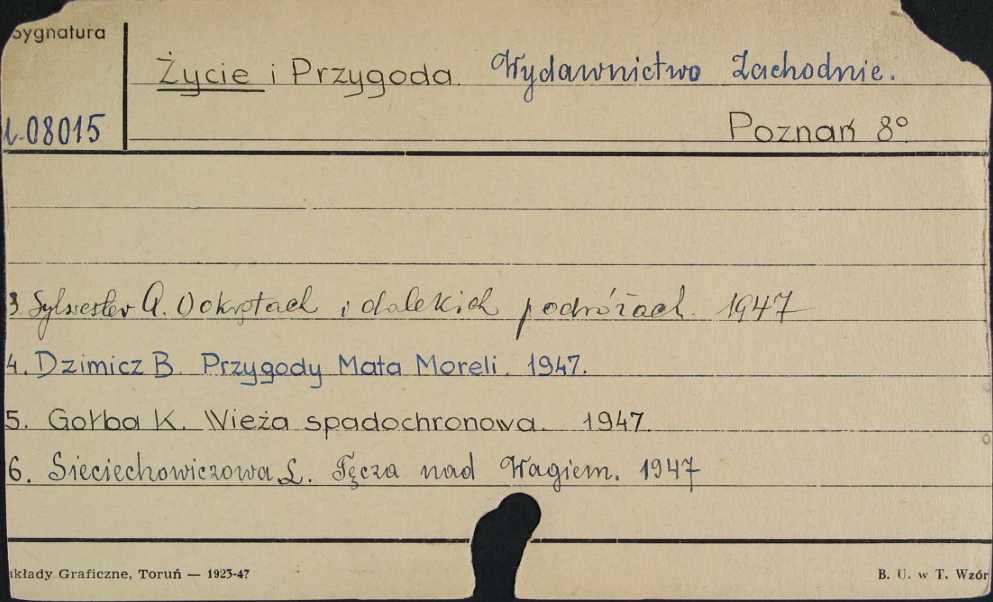 Sygnatura
Życie i Przygoda. Wydawnictwo Zachodnie.
08015
Poznań 8°.
3. Sylwester A. O okrętach i dalekich podróżach. 1947
4. Dzimicz B. Przygody Mata Moreli. 1947.
5. Gołba K. Wieża spadochronowa. 1947.
6. Sieciechowiczowa L. Tęcza nad Wagiem. 1947
kłady Graficzne, Toruń — 1923-47
B. U. w T. Wzór